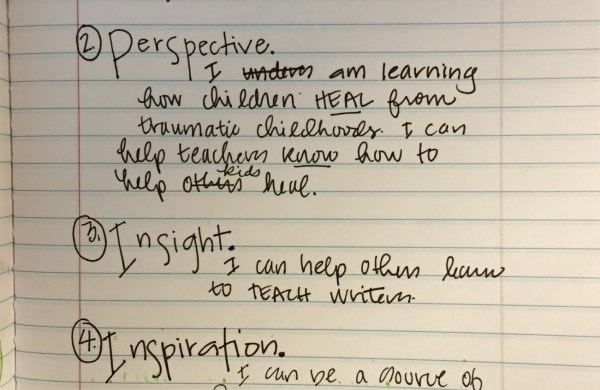 ② Perspective.
I unders am learning
how children HEAL from
traumatic childhoods. I can
help teachers know how to
kids
help others heal.
③. Insight.
I can help others learn
to TEACH writers.
④. Inspiration.
I can be a source of